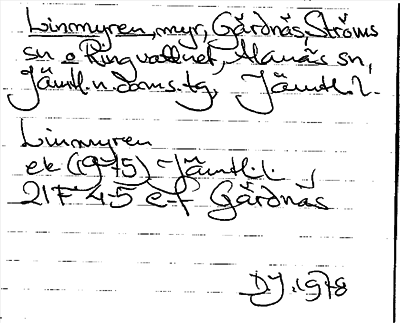 Linmyren, myr, Gärdnäs, Ströms
sn o Ringvattnet, Alanäs sn,
Jämtl.n.doms.tg, Jämtl.l.
Linmyren
ek (1975) Jämtl.l.,
21F 4-5 e-f Gärdnäs
DJ.1978